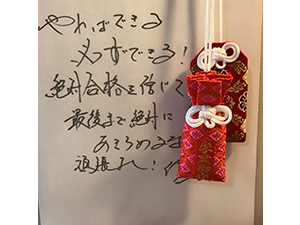 やればできる
必ずできる!
絶対合格を信じて
最後まで絶対に
あきらめるな
頑張れ!